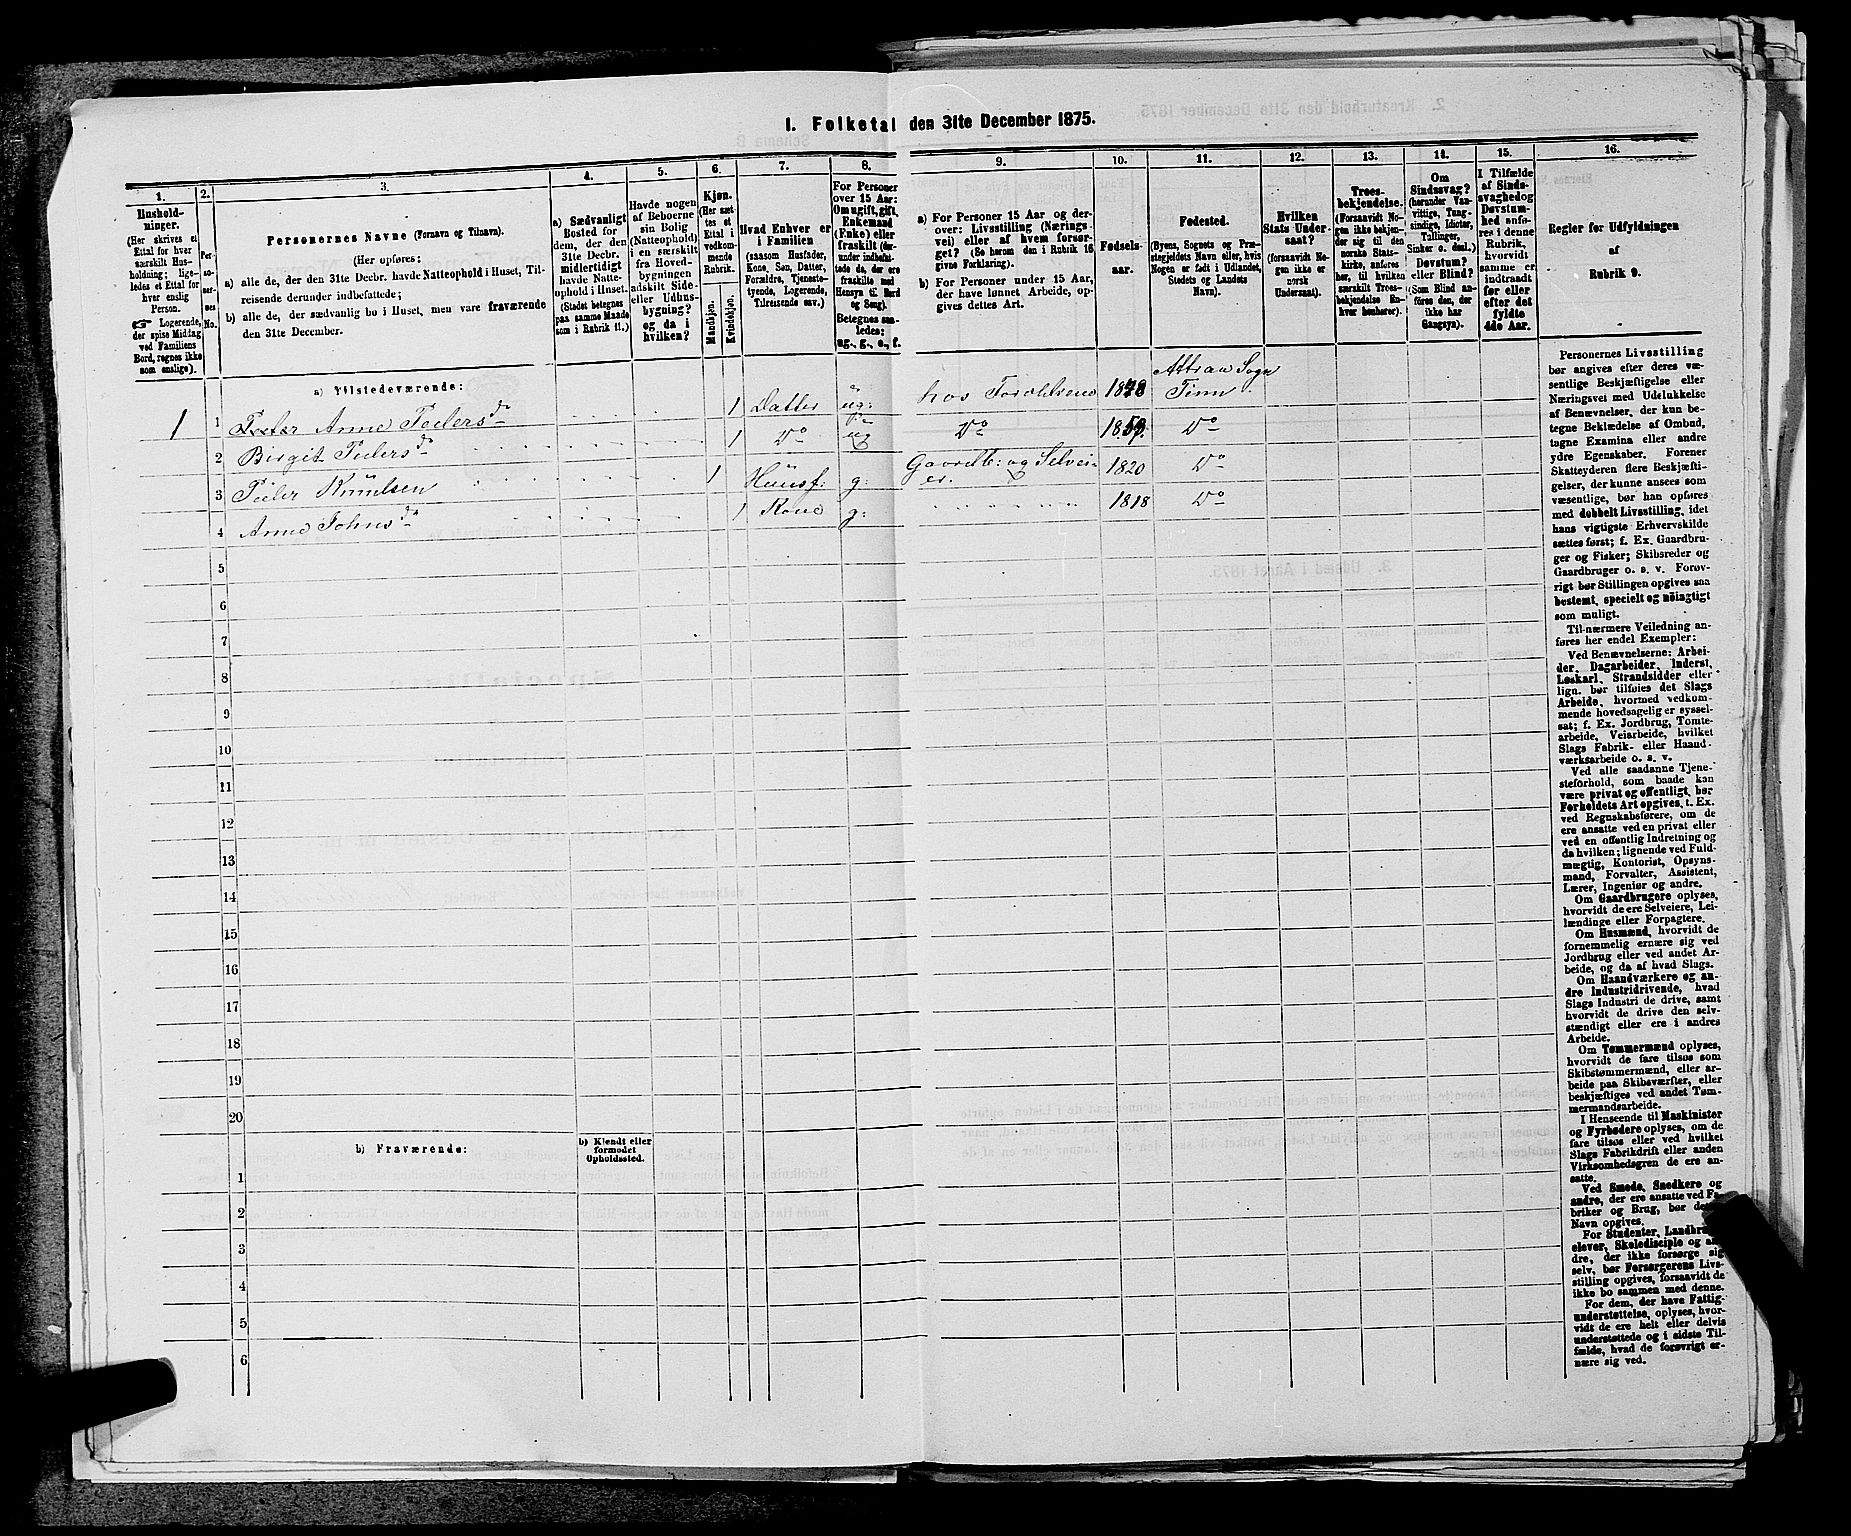 I. Folketal den 31te December 1875.
1.
2.
3.
4.
5.
6.
7.
8.
9.
10.
11.
12.
13.
14.
15.
16.
Hushold-
ninger.
(Her skrives et
Ettal for hver
særskilt Hus-
holdning; lige-
ledes et Ettal for
hver enslig
Person.
☞ Logerende,
der spise Middag
ved Familiens
Bord, regnes ikke
som enslige).
Per-
so-
ner-
nes
No.
Personernes Navne (Fornavn og Tilnavn).
(Her opføres:
a) alle de, der den 31te Decbr. havde Natteophold i Huset, Til-
reisende derunder indbefattede;
b) alle de, der sædvanlig bo i Huset, men vare fraværende
den 31te December.
a) Sædvanligt
Bosted for
dem, der den
31te Decbr.
midlertidigt
havde Natte-
ophold i Huset.
(Stedet betegnes
paa samme Maade
som i Rubrik 11.)
Havde nogen
af Beboerne
sin Bolig
(Natteophold)
i en særskilt
fra Hoved-
bygningen
adskilt Side-
eller Udhus-
bygning?
og da i
hvilken?
Kjøn.
(Her sæt-
tes et
Ettal i
vedkom-
mende
Rubrik.
Mandkjøn.
Kvindekjøn.
Hvad Enhver er
i Familien
(saasom Husfader,
Kone, Søn, Datter,
Forældre, Tjeneste-
tyende, Logerende,
Tilreisende osv.)
For Personer
over 15 Aar:
Om ugift, gift,
Enkemand
(Enke) eller
fraskilt (der-
under indbefat-
tede de, der ere
fraskilte med
Hensyn til Bord
og Seng).
Betegnes saa-
ledes:
ug., g., e., f.
a) For Personer 15 Aar og der-
over: Livsstilling (Nærings-
vei) eller af hvem forsør-
get? (Se herom den i Rubrik 16
givne Forklaring).
b) For Personer under 15 Aar,
der have lønnet Arbeide, op-
gives dettes Art.
Fødsels-
aar.
Fødested.
(Byens, Sognets og Præ-
stegjeldets Navn eller, hvis
Nogen er født i Udlandet,
Stedets og Landets
Navn).
Hvilken
Stats Under-
saat?
(forsaavidt No-
gen ikke er
norsk
Undersaat).
Troes-
bekjendelse.
(Forsaavidt No-
gen ikke bekjen-
der sig til den
norske Stats-
kirke, anføres
her, til hvilken
særskilt Troes-
bekjendelse En-
hver henhører).
Om
Sindssvag?
(herunder Van-
vittige, Tung-
sindige, Idioter,
Tullinger,
Sinker o. desl.)
Døvstum?
eller Blind?
(Som Blind an-
føres den, der
ikke har
Gangsyn).
I Tilfælde
af Sinds-
svaghed og
Døvstum-
hed anfø-
res i denne
Rubrik,
hvorvidt
samme er
indtraadt
før eller
efter det
fyldte
4de Aar.
Regler for Udfyldningen
af
Rubrik 9.
a) Tilstedeværende:
1 1 Anne Peders dr 1 Datter ug: hos Forældrene 1848 Attraa Sogn Tinn.
2 Birgit Peders dr 1 Do ug Do 1859. Do
3 Peder Knudsen 1 Huusf: g: Gaardb: og Selvei-
er. 1820 Do
4 Anne Johns dr 1 Kone g: 1818 Do
5
6
7
8
9
10
11
12
13
14
15
16
17
18
19
20
b) Fraværende:
b) Kjendt eller
formodet
Opholdssted.
1
2
3
4
5
6
Personernes Livsstilling
bør angives efter deres væ-
sentlige Beskjæftigelse eller
Næringsvei med Udelukkelse
af Benævnelser, der kun be-
tegne Beklædelse af Ombud,
tagne Examina eller andre
ydre Egenskaber. Forener
Skatteyderen flere Beskjæfti-
gelser, der kunne ansees som
væsentlige, bør han opføres
med dobbelt Livsstilling, idet
hans vigtigste Erhvervskilde
sættes først; f. Ex. Gaardbru-
ger og Fisker; Skibsreder og
Gaardbruger o. s. v. Forøv-
rigt bør Stillingen opgives saa
bestemt, specielt og nøiagtigt
som muligt.
Til nærmere Veiledning an-
føres her endel Exempler:
Ved Benævnelserne: Arbei-
der, Dagarbeider, Inderst,
Løskarl, Strandsidder eller
lign. bør tilføies det Slags
Arbeide, hvormed vedkom-
mende hovedsagelig er syssel-
sat; f. Ex. Jordbrug, Tomte-
arbeide, Veiarbeide, hvilket
Slags Fabrik- eller Haand-
værksarbeide o. s. v.
Ved alle saadanne Tjene-
steforhold, som baade kan
være privat og offentligt, bør
Forholdets Art opgives, t. Ex.
ved Regnskabsførere, om de
ere ansatte ved en privat eller
ved en offentlig Indretning og
da hvilken; lignende ved Fuld-
mægtig, Kontorist, Opsyns-
mand, Forvalter, Assistent,
Lærer, Ingeniør og andre.
Om Gaardbrugere oplyses,
hvorvidt de ere Selveiere, Lei-
lændinge eller Forpagtere.
Om Husmænd, hvorvidt de
fornemmelig ernære sig ved
Jordbrug eller ved andet Ar-
beide, og da af hvad Slags.
Om Haandværkere og an-
dre Industridrivende, hvad
Slags Industri de drive, samt
hvorvidt de drive den selv-
stændigt eller ere i andres
Arbeide.
Om Tømmermænd oplyses,
hvorvidt de fare tilsøs som
Skibstømmermænd, eller ar-
beide paa Skibsværfter, eller
beskjæftiges ved andet Tøm-
mermandsarbeide.
I Henseende til Maskinister
og Fyrbødere oplyses, om de
fare tilsøs eller ved hvilket
Slags Fabrikdrift eller anden
Virksomhedsgren de ere an-
satte.
Ved Smede, Snedkere og
andre, der ere ansatte ved Fa-
briker og Brug, bør
Navn opgives.
For Studenter,
elever, Skoledisciple og
dre, der ikke forsørge sig
selv, bør Forsørgerens Livs-
stilling opgives, forsaavidt de
ikke bo sammen med denne.
For dem, der have Fattig-
understøttelse, oplyses, hvor-
vidt de ere helt eller delvis
understøttede og i sidste Til-
fælde, hvad de forøvrigt er-
nære sig ved.